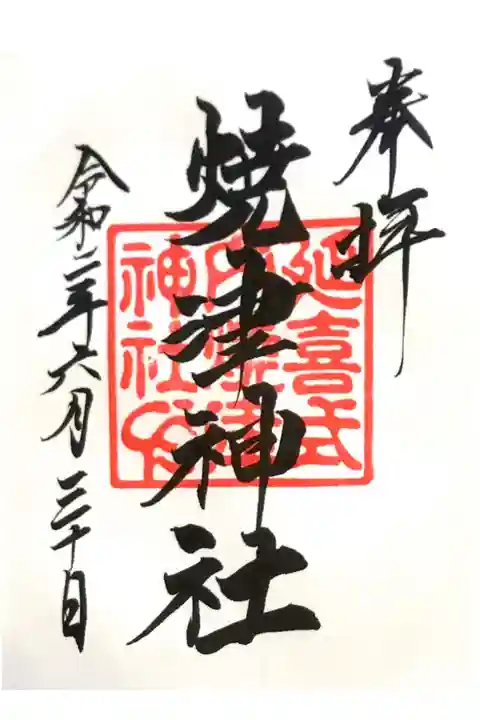 奉拝
焼津神社
延喜式
内焼津
神社印
令和二年六月三十日